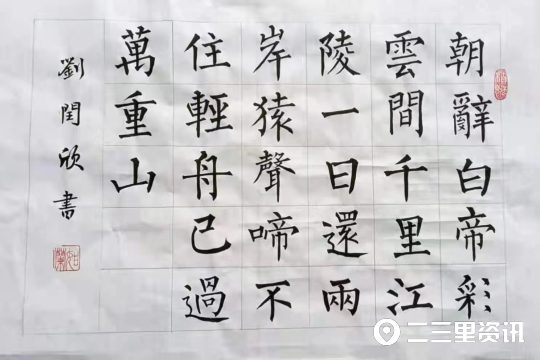 朝辭白帝彩
雲間千里江
陵一日還兩
岸猿聲啼不
住輕舟已過
萬重山
劉閏欣書
二三里资讯